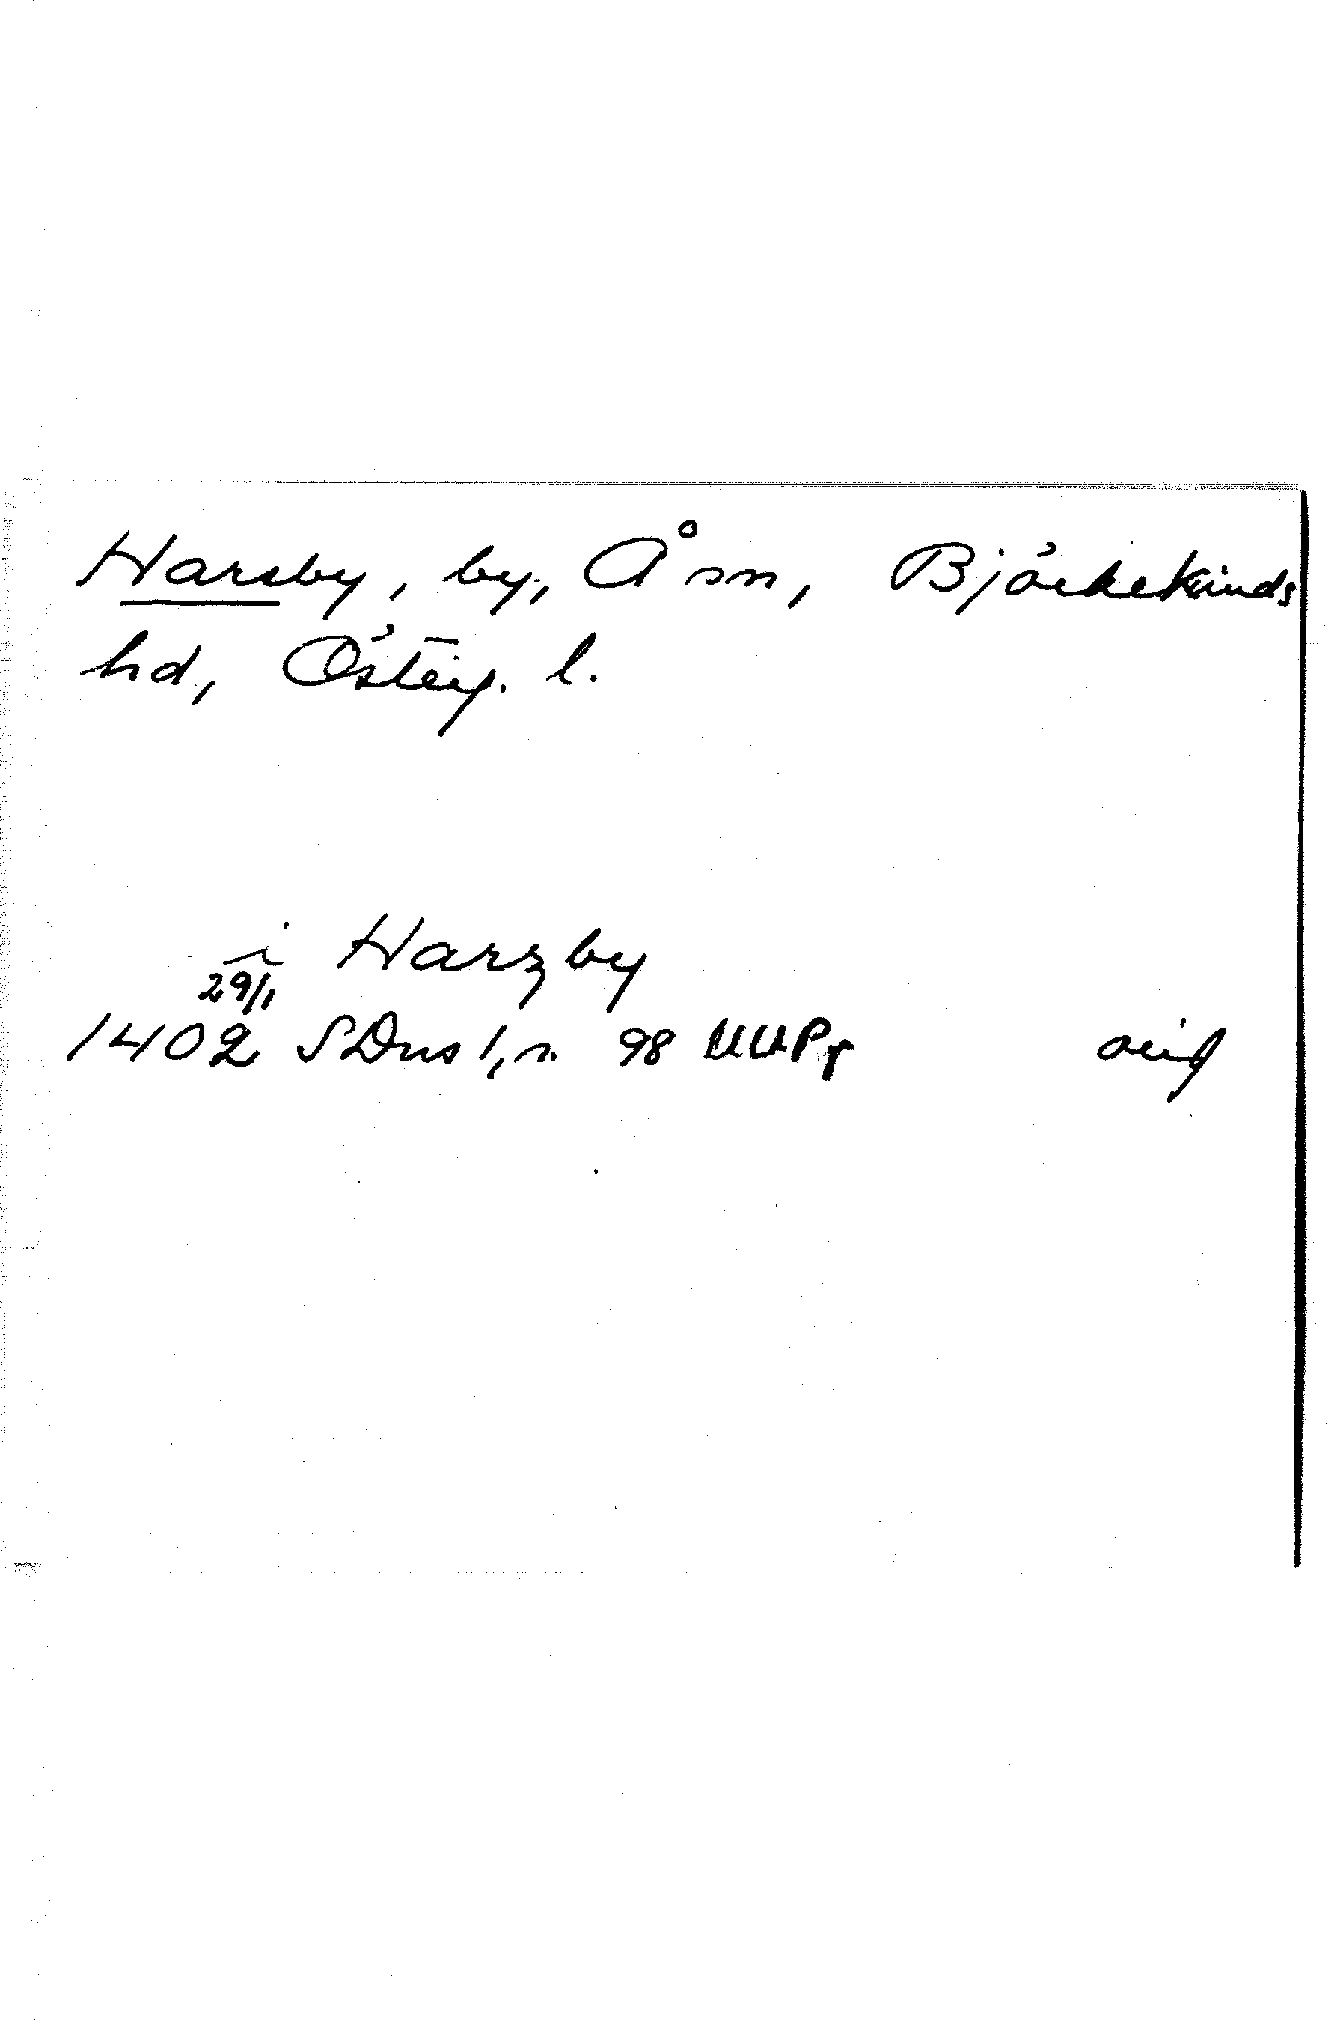 Harsby, by, Å sn, Björkekinds
hd, Österg. l.
i Harzby
29/1
1402 SDns 1, s. 98 UUPr orig